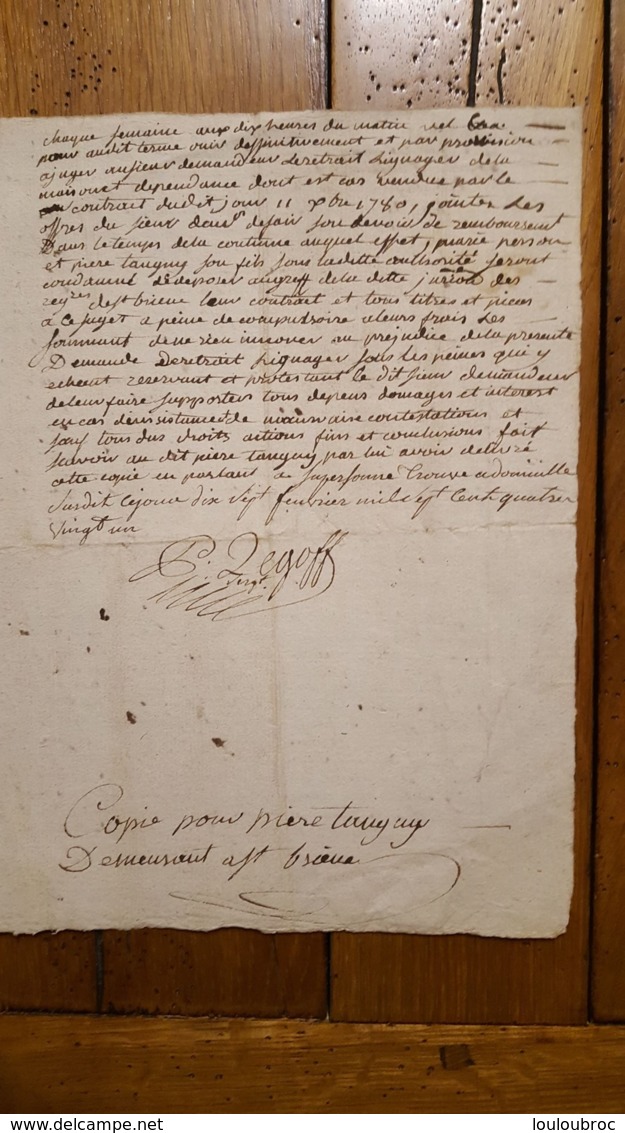 chaque semaine aux dix heures du matin
pour audit terme ouir deffinitivement et par provision
ajuger ausieur demandeur le retrait Lignager de la
maison et dependance dont est cas vendue par le
contrat dudit jour 11 xbre 1780, jointes Les
offres du sieur dem.r defair son devoir de remboursement
Dans le temps dela coutume auquel effet, marie person
et piere tanguy son fils sous laditte authorité seront
condanné de deposer augreff de la ditte jurion des
reg.res de st brieue leur contrat et tous titres et pieces
a ce sujet a peine de compulsoire aleurs frais Les
sommant de ne rien innover au prejudice dela presente
Demande deretrait Lignager sous les peines qui y
echeent reservant et protestant le dit sieur demandeur
deleur faire supporter tous depens domages et interest
en cas dinsistance de mauvaise contestations et
sauf tous dus droits actions fins et conclusions fait
scavoir au dit piere tanguy par lui avoir delivré
cette copie en parlant a sa personne trouve adomicille
Susdit cejour dix sept feuvrier mil sept cent quatre
vingt un
P. Legoff
serg.t
Copie pour piere tanguy
Demeurant a st brieue
delcampe.net
louloubroc